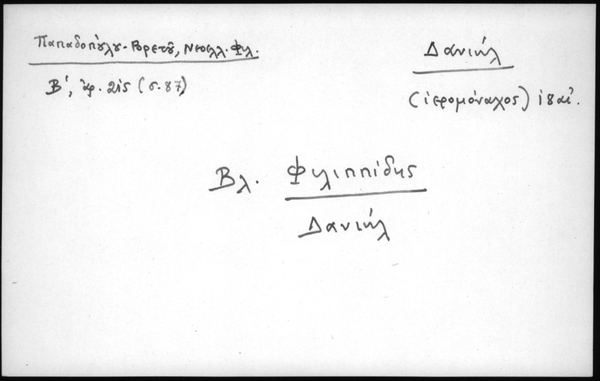 Παπαδοπούλου-Βρετοῦ, Νεοελλ. Φιλ.
Β', ἀρ. 215 (σ. 87)
Δανιήλ
(ἱερομόναχος) 18 αἰ.
Βλ. Φιλιππίδης
Δανιήλ